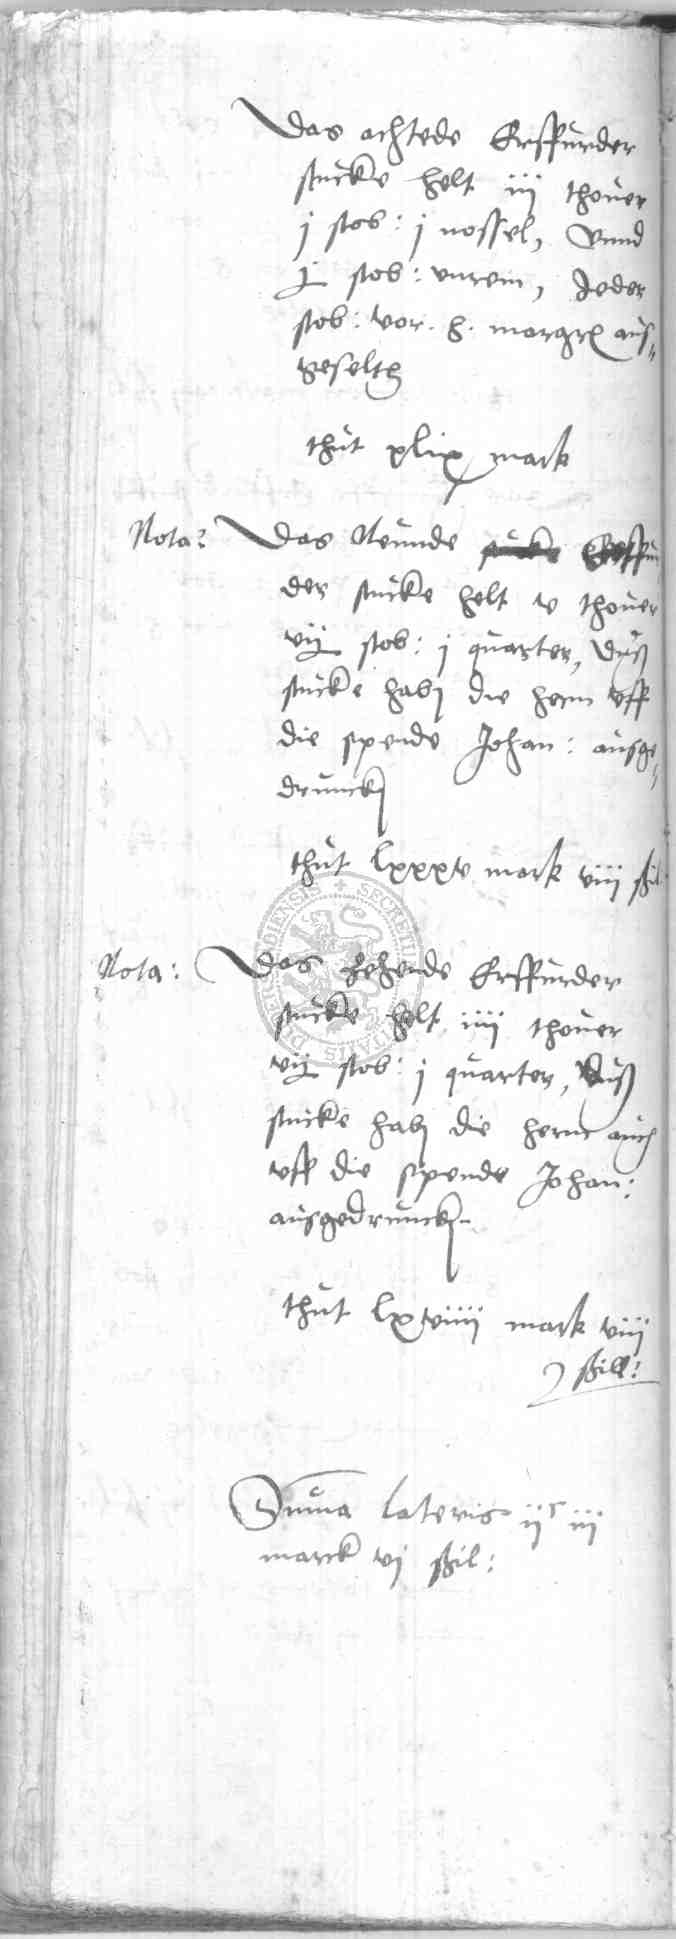 Das achtede Erffurder
stucke helt iij thover
j stob: j nossel, Vnnd
j stob: vnrein, Jeder
stob: vor. h. margr aus„
geselt
thut xlix mark
Nota: Das Neunde Erffur
der stucke helt v thover
vij stob: j quarter, Duß
stucke hab die hern vff
die spende Johan: ausge„
drunck
thut lxxxv mark viij ßil
Nota: Das zehende Erffurder
stucke helt iiij thover
vij stob: j quarter, Duß
stucke hab die hern auch
vff die spende Johan:
ausgedrunck
thut lxviiij mark viij
ßill:
Suma lateris ijc iij
marck vj ßil:
SECRETUM CIVITATIS